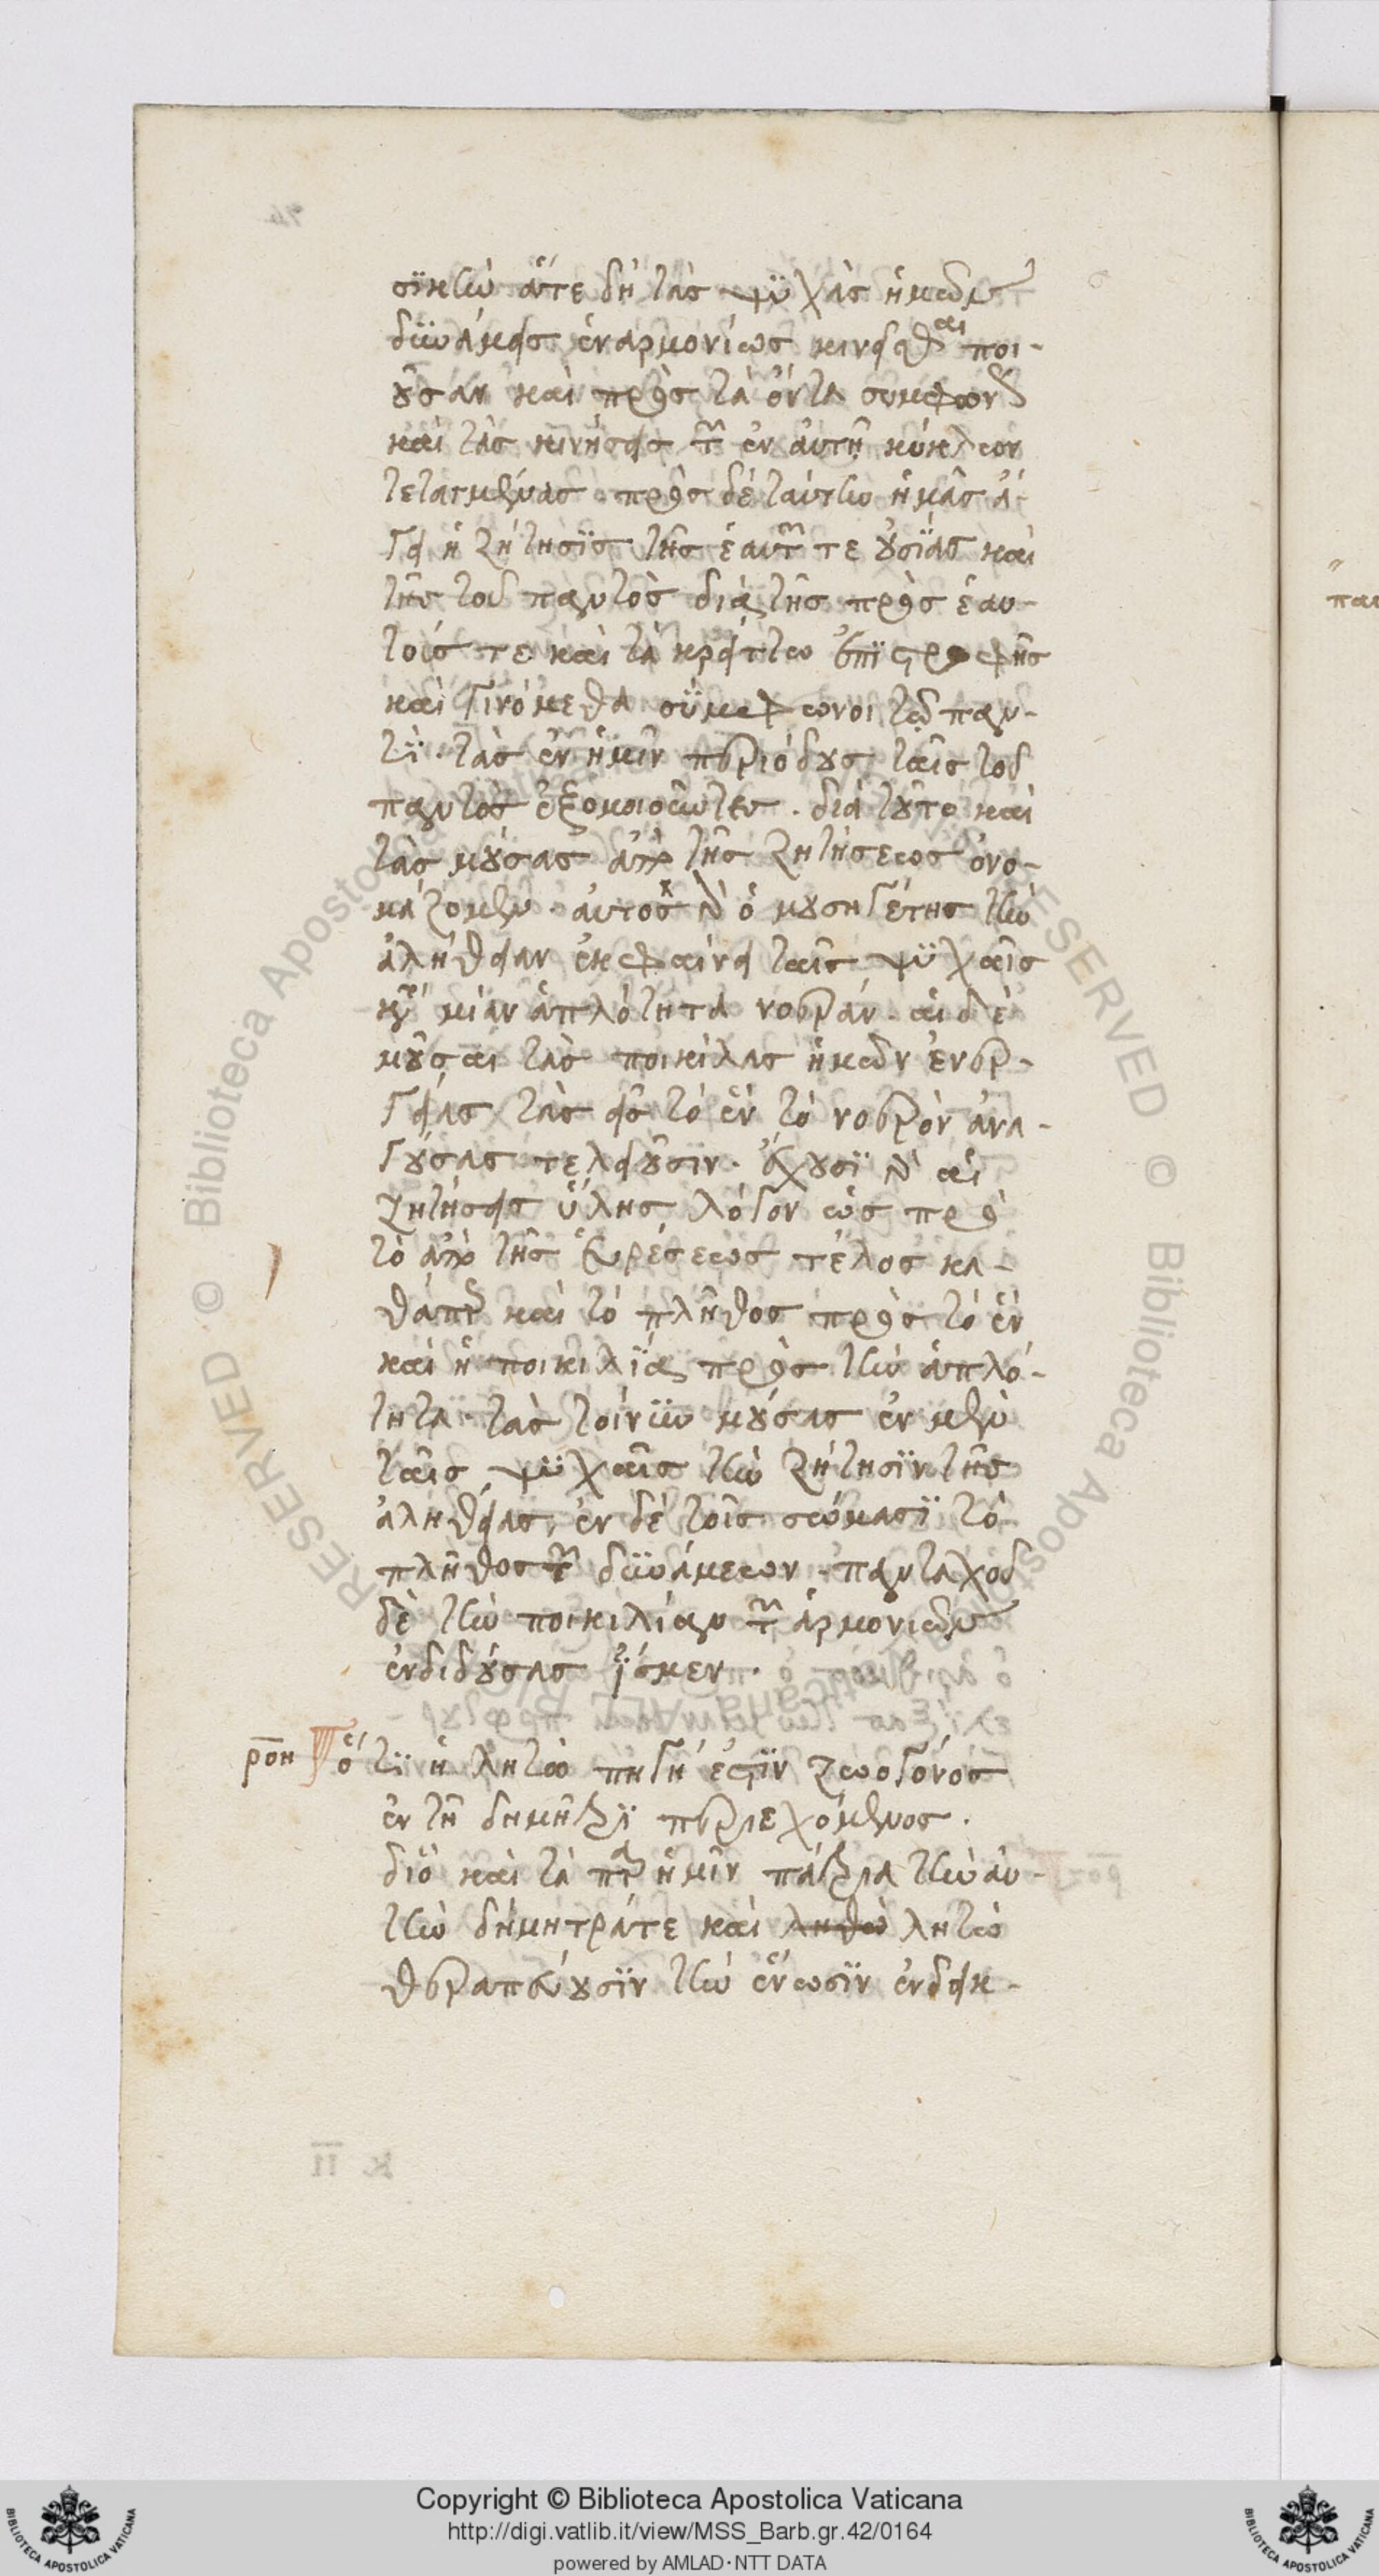 σϊκὴν ἅτε δὴ τὰς ψϋχὰς ἡμῶν
δϋνάμεις ἐναρμονίως κινεῖσθαι ποι-
οῦσαν καὶ πρὸς τὰ ὄντα συμφώνους
καὶ τὰς κινήσεις τῶν ἐν αὐτῇ κύκλων
τεταγμένας. πρὸς δὲ ταύτην ἡμᾶς ἄ-
γει ἡ ζήτησϊς τῆς ἑαυτῶν τε οὐσϊας καὶ
τῆς τοῦ παντὸς διὰ τῆς πρὸς ἑαυ-
τοὺς τε καὶ τὰ κρείττω ἐπϊστροφῆς
καὶ γινόμεθα σϋμφωνοι τῷ παν-
τϊ. τὰς ἐν ἡμῖν περιόδους ταῖς τοῦ
παντὸς ἐξομοιοῦντες. διὰ τοῦτο καὶ
τὰς μούσας ἀπὸ τῆς ζητήσεως ὀνο-
μάζομεν. αὐτος δὲ ὁ μουσηγέτης τὴν
ἀλήθειαν ἐκφαίνει ταῖς ψϋχαῖς
κατὰ μίαν ἁπλότητα νοεράν. αἱ δὲ
μοῦσαι τὰς ποικίλας ἡμῶν ἐνερ-
γείας τὰς εἰς τὸ ἓν τὸ νοερὸν ἀνα-
γούσας τελειοῦσιν. ἔχουσϊ δὲ αἱ
ζητήσεις ὕλης λόγον ὡς πρὸς
τὸ ἀπὸ τῆς εὑρέσεως τέλος κα-
θάπερ καὶ τὸ πλῆθος πρὸς τὸ ἓν
καὶ ἡ ποικιλϊα πρὸς τὴν ἁπλό-
τητα. τὰς τοίνϋν μούσας ἐν μὲν
ταῖς ψϋχαῖς τὴν ζήτησϊν τῆς
ἀληθείας, ἐν δὲ τοῖς σώμασϊ τὸ
πλῆθος τῶν δϋνάμεων. πανταχοῦ
δὲ τὴν ποικιλίαν τῶν ἁρμονιῶν
ἐνδιδούσας ἴσμεν.
ροη ὅτϊ ἡ λητὼ πηγή ἐστϊν ζωογόνος
ἐν τῇ δημήτρϊ περιεχόμενος.
διὸ καὶ τὰ παρ' ἡμῖν πάτρια τὴν αὐ-
τὴν δήμητρά τε καὶ ληθὼ λητὼ
θεραπεύουσϊν τὴν ἕνωσϊν ἐνδεικ-